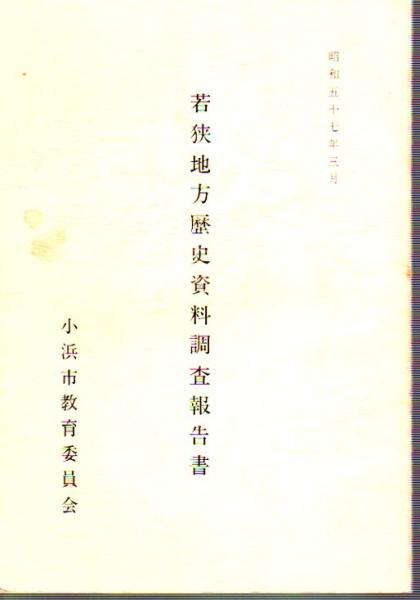 昭和五十七年三月
若狭地方歴史資料調査報告書
小浜市教育委員会